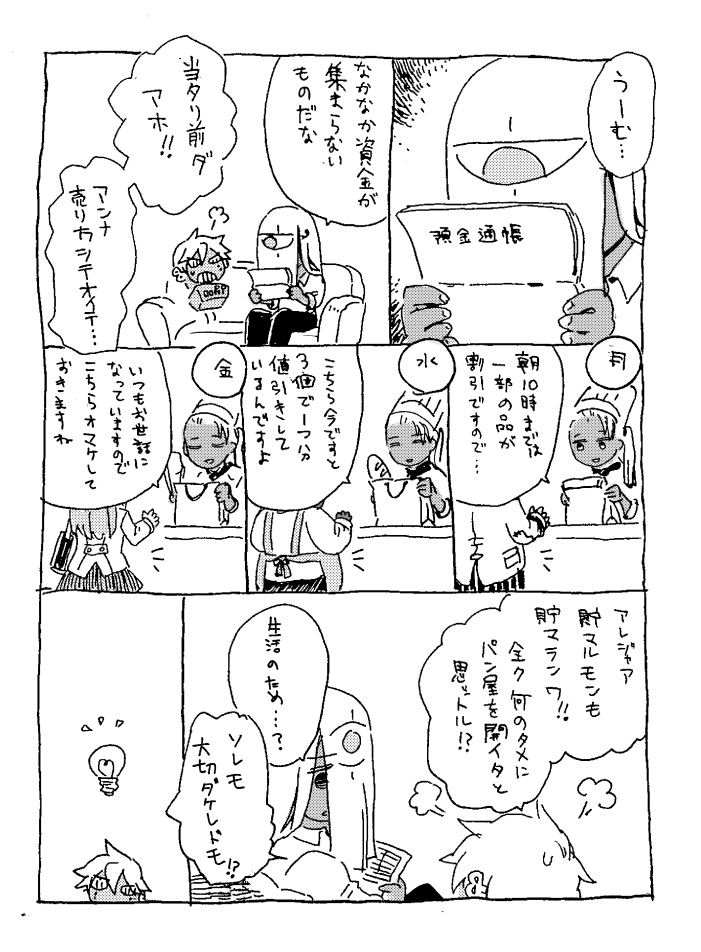 うーむ…
預金通帳
なかなか資金が
集まらない
ものだな
当タリ前ダ
アホ!!
アンナ
売リカシテオイテ…
月
朝10時までは
一部の品が
割引ですので…
水
こちら今ですと
3個で一つ分
値引きして
いるんですよ
金
いつもお世話に
なっていますので
こちらオマケして
おきますね
アレジャア
貯マルモンも
貯マランワ!!
全ク何のタメに
パン屋を開イタと
思ットル!?
生活のため…?
ソレモ
大切ダケレドモ!?